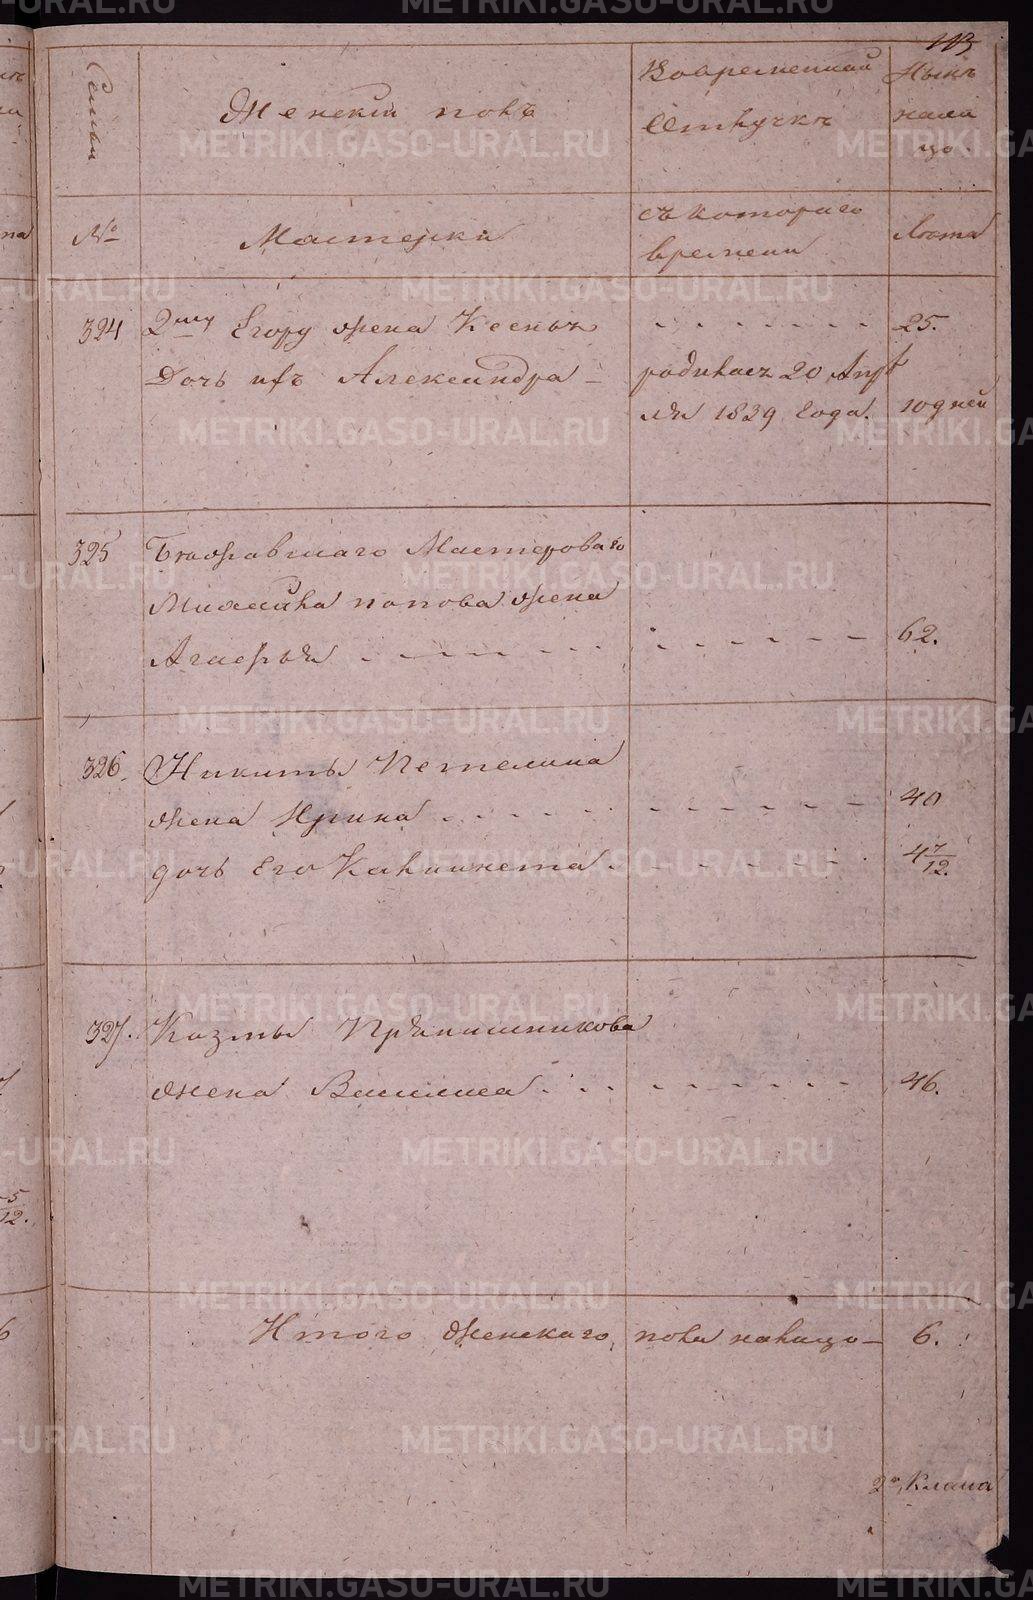 113
Семьи
Женскiй полъ
Во временной
Отлучкѣ
Нынѣ
нали
цо
№
Мастерки
съ котораго
времени
Лѣта
324
2му Егору жена Ксенья
25.
Дочь ихъ Александра
родилась 20 Апр
ля 1839 Года.
10 дней
325
Бѣжавшаго Мастероваго
Михайла Попова жена
Агафья
62.
326.
Никиты Петелина
жена Ирина
40
дочь Его Капитолина
4 7/12.
327.
Казмы Прянишникова
жена Василиса
46.
Итого женскаго пола налицо
6.
2го Класа
METRIKI.GASO-URAL.RU